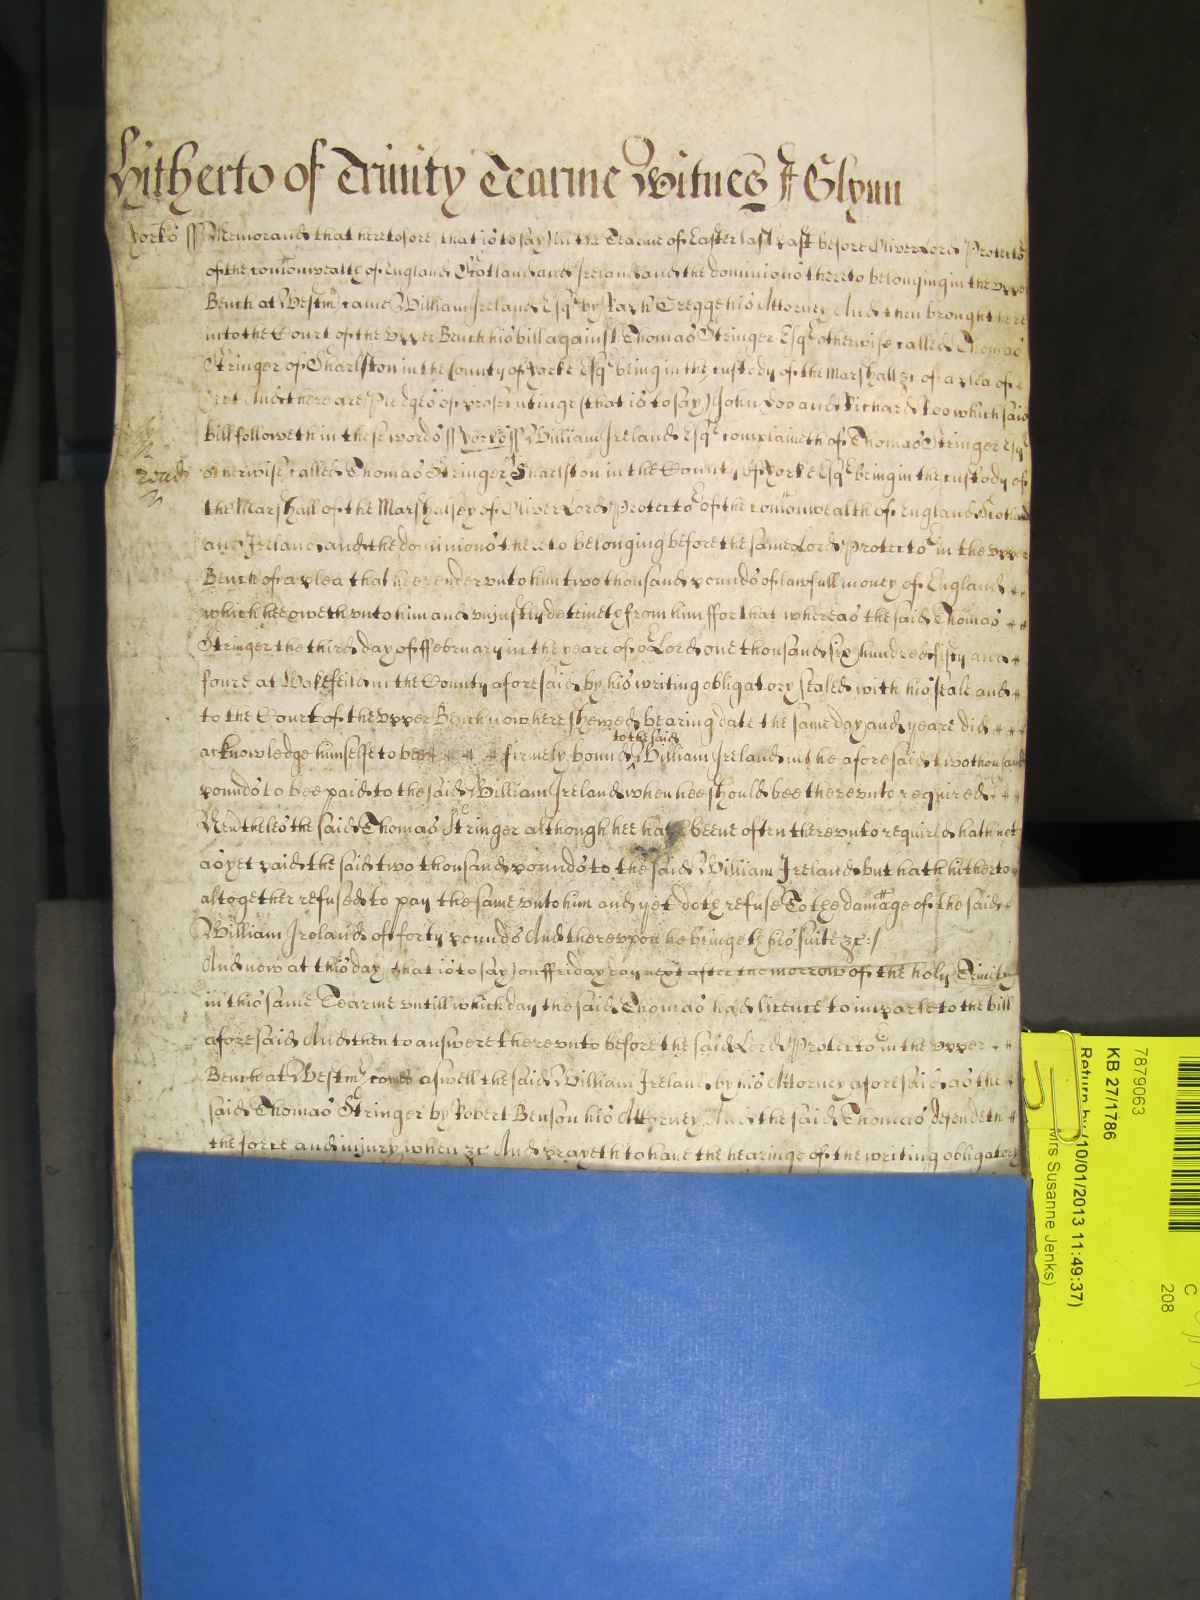 Hitherto of Trinity Tearme Witnes J Glynn
Yorks ss Memorand that heretofore (that is to say) in the Tearme of Easter last past before Oliver Lord Protector
of the comonwealth of England Scotland and Ireland and the dominions thereto belonging in the upper
Bench at Westm came William Ireland Esqr by his Attorney And then brought here
into the Court of the upper Bench his bill against Thomas Stringer Esqr otherwise called Thomas
Stringer of Sharlston in the County of Yorke Esqr being in the custody of the Marshall &c of a plea of
Debt And there are Pledges of prosecutinge (that is to say) John Doo and Richard Roo which said
bill followeth in these words ss Yorks ss William Ireland Esqr complaineth of Thomas Stringer Esqr
otherwise called Thomas Stringer of Sharlston in the County of Yorke Esqr being in the custody of
the Marshall of the Marshalsey of Oliver Lord Protector of the comonwealth of England Scotland
and Ireland and the dominions thereto belonging before the same Lord Protector in the upper
Bench of a plea that hee render unto him two thousand pounds of lawfull money of England
which hee oweth unto him and unjustly deteineth from him ffor that whereas the said Thomas
Stringer the third day of ffebruary in the yeare of or Lord one thousand six hundred fifty and
foure at Wakefeild in the County aforesaid by his writing obligatory sealed with his seale and
to the Court of the upper Bench now here shewed bearing date the same day and yeare did
to the said
acknowledge himselfe to bee firmely bound William Ireland in the aforesaid two thousand
pounds to bee paid to the said William Ireland when hee should bee thereunto required
Nevtheles the said Thomas Stringer although hee hath beene often thereunto required hath not
as yet paid the said two thousand pounds to the said William Ireland but hath hitherto
altogether refused to pay the same unto him and yet doth refuse To the damage of the said
William Ireland of forty pounds And thereupon he bringeth his suite &c
And now at this day (that is to say) on ffriday next after the morrow of the holy Trinity
in this same Tearme untill which day the said Thomas had licence to imparle to the bill
aforesaid And then to answere thereunto before the said Lord Protector in the upper
Bench at Westmr comes aswell the said William Ireland by his Attorney aforesaid as the
said Thomas Stringer by Robert Benson his Attorney And the said Thomas defendeth
the force and injury when &c And prayeth to have the hearinge of the writing obligatory
7879063
KB 27/1786
Return by (10/01/2013 11:49:37)
Mrs Susanne Jenks)
C
208